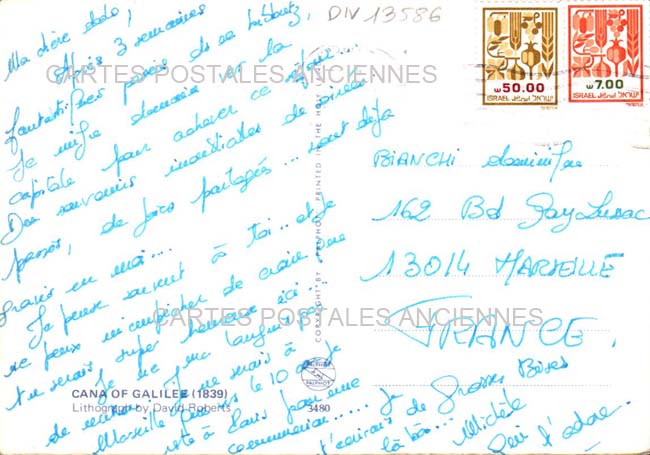 DIV 13586
Ma chère dodo,
Après 3 semaines
fantastiques passées dans un kibbutz,
Je file demain vers la
capitale pour achever ce séjour....
Des souvenirs inoubliables de
passés, de joies partagées... sont déjà
gravés en moi....
Je pense souvent à toi.. et je
ne peux m'empêcher de croire que
tu serais super heureuse ici...
Je ne
de Marseille
Marseille le 10
à Paris pour une
communion.... Je
t'écrirais de
là bas...
Grosses Bises
Michèle
Qui t'adore.
CARTES POSTALES ANCIENNES
CARTES POSTALES ANCIENNES
50.00
ISRAEL اسرائيل ישראל
7.00
ISRAEL اسرائيل ישראל
BIANCHI dominique
162 Bd Gay Lussac
13014 MARSEILLE
FRANCE.
COPYRIGHT BY PALPHOT PRINTED IN THE HOLY
PALPHOT
CANA OF GALILEE (1839)
Lithograph by David Roberts
3480